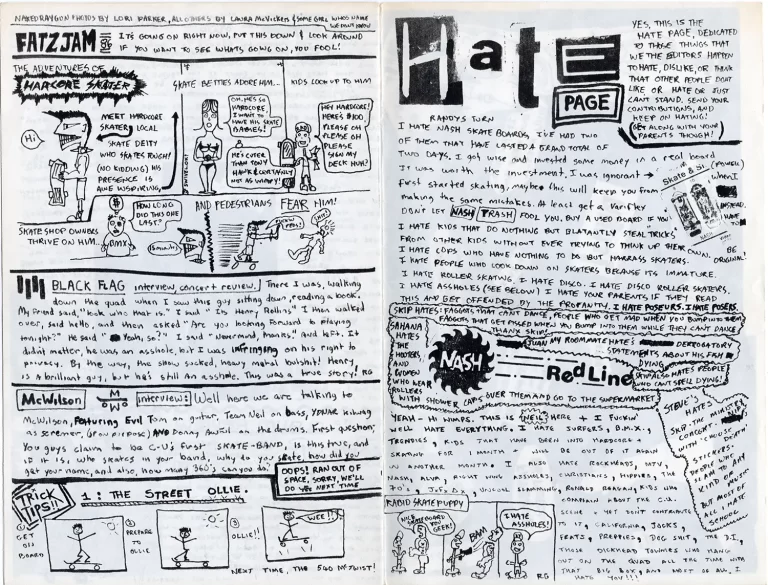 NAKEDRAYGON PHOTOS BY LORI PARKER, ALL OTHERS BY LAURA McVICKERS & SOME GIRL WHO'S NAME WE DON'T KNOW
FATZJAM 89
IT'S GOING ON RIGHT NOW, PUT THIS DOWN & LOOK AROUND
IF YOU WANT TO SEE WHATS GOING ON, YOU FOOL!
THE ADVENTURES OF
HARDCORE SKATER
Hi
MEET HARDCORE
SKATER, LOCAL
SKATE DEITY
WHO SKATES TOUGH!
(NO KIDDING) HIS
PRESENCE IS
AWE INSPIRING,
SKATE BETTIES ADORE HIM...
OH, HE'S SO
HARDCORE
I WANT TO
HAVE HIS SKATE
BABIES!
HE'S CUTER
THAN TONY
HAWK & CERTAINLY
NOT AS WIMPY!
KIDS LOOK UP TO HIM
HEY HARDCORE!
HERE'S $100.
PLEASE OH
PLEASE OH
PLEASE
SIGN MY
DECK HUH?
SKATE SHOP OWNERS
THRIVE ON HIM...
HOW LONG
DID THIS ONE
LAST?
BMX
AND PEDESTRIANS FEAR HIM!
BLACK FLAG interview, concert review. There I was, walking
down the quad when I saw this guy sitting down, reading a book.
My friend said, "look who that is." I said "Its Henry Rollins" I then walked
over, said hello, and then asked "Are you looking forward to playing
tonight?" He said "Yeah, so?" I said "Nevermind, thanks" and left. It
didn't matter, he was an asshole, but I was infringing on his right to
privacy. By the way, the show sucked, heavy metal bullshit! Henry
is a brilliant guy, but he's still an asshole. This was a true story! RG
McWilson interview: Well here we are talking to
McWilson, featuring Evil Tom on guitar, Team Neil on bass,
as screamer, AND Donny on the drums. First question;
You guys claim to be C-U's First SKATE-BAND, is this true, and
if it is, who skates in your band, why do you skate, how did you
get your name, and also, how many 360's can you do?
OOPS! RAN OUT OF
SPACE, SORRY, WE'LL
DO NEXT TIME
TRICK
TIPS!!
1: THE STREET OLLIE.
① GET
ON
BOARD
② PREPARE
TO
OLLIE
③
OLLIE!!
WHEE!!
NEXT TIME, THE 540 McTWIST!
Hate
PAGE
YES, THIS IS THE
HATE PAGE, DEDICATED
TO THOSE THINGS THAT
WE THE EDITORS HAPPEN
TO HATE, DISLIKE, OR THINK
THAT OTHER PEOPLE DON'T
LIKE OR HATE OR JUST
CAN'T STAND. SEND YOUR
CONTRIBUTIONS, AND
KEEP ON HATING!
(GET ALONG WITH YOUR
PARENTS THOUGH!)
RANDYS TURN
I HATE NASH SKATE BOARDS, I'VE HAD TWO
OF THEM THAT HAVE LASTED A GRAND TOTAL OF
TWO DAYS, I got wise and invested some money in a real board
It was worth the investment, I was ignorant → (POWELL) when I
first started skating, maybe this will keep you from
making the same mistakes. At least get a Variflex INSTEAD.
DON'T LET NASH TRASH FOOL YOU, BUY A USED BOARD IF YOU HAVE TO
I HATE KIDS THAT DO NOTHING BUT BLATANTLY STEAL "TRICKS"
FROM OTHER KIDS WITHOUT EVER TRYING TO THINK UP THEIR OWN. BE ORIGINAL!
I HATE COPS WHO HAVE NOTHING TO DO BUT HARRASS SKATERS.
I HATE PEOPLE WHO LOOK DOWN ON SKATERS BECAUSE ITS IMMATURE.
I HATE ROLLER SKATING, I HATE DISCO. I HATE DISCO ROLLER SKATERS,
I HATE ASSHOLES (SEE BELOW) I HATE YOUR PARENTS IF THEY READ
THIS AND GET OFFENDED BY THE PROFANITY. I HATE POSEURS. I HATE POSERS.
SKIP HATES: FAGGOTS THAT CAN'T DANCE, PEOPLE WHO GET MAD WHEN YOU BUMP INTO THEM,
FAGGOTS THAT GET PISSED WHEN YOU BUMP INTO THEM WHILE THEY CAN'T DANCE
SAHANA
HATES
THE
HOOTERS
AND
WOMEN
WHO WEAR
ROLLERS
WITH SHOWER CAPS OVER THEM AND GO TO THE SUPERMARKET
NASH
RedLine
MY ROOMMATE HATES DERROGATORY
STATEMENTS ABOUT HIS FISH
DYING
ALSO HATES PEOPLE
WHO CAN'T SPELL DYING!
YEAH- HI WIMPS. THIS IS HERE + I FUCKIN'
WELL HATE EVERYTHING. I HATE SURFERS, B.M.X.,
TRENDIES, KIDS THAT HAVE BEEN INTO HARDCORE +
SKATING FOR 1 MONTH + WILL BE OUT OF IT AGAIN
IN ANOTHER MONTH. I ALSO HATE ROCKHEADS, MTV,
NASH, ALVA, RIGHT WING ASSHOLES, CHRISTIANS, HIPPIES, THE
RONALD REAGAN, KIDS WHO
COMPLAIN ABOUT THE C.U.
SCENE + YET DON'T CONTRIBUTE
TO IT, CALIFORNIA, JOCKS,
FRATS, PREPPIES, DOG SHIT, THE D.I.,
THOSE DICKHEAD TOWNIES WHO HANG
OUT ON THE QUAD ALL THE TIME WITH
THAT BIG BOX, AND MOST OF ALL, I
HATE YOU!!!
STEVE'S
HATES
SKIP THE MINISTRY
CONCERT
WITH "CHOOSE
DEATH"
STICKERS.
PEOPLE WHO
CLAIM TO BE
BUT MOST OF
ALL I HATE
SCHOOL
RABID SKATE PUPPY
NICE
SKATEBOARD
YOU
GEEK!
BAM
I HATE
ASSHOLES!
RG